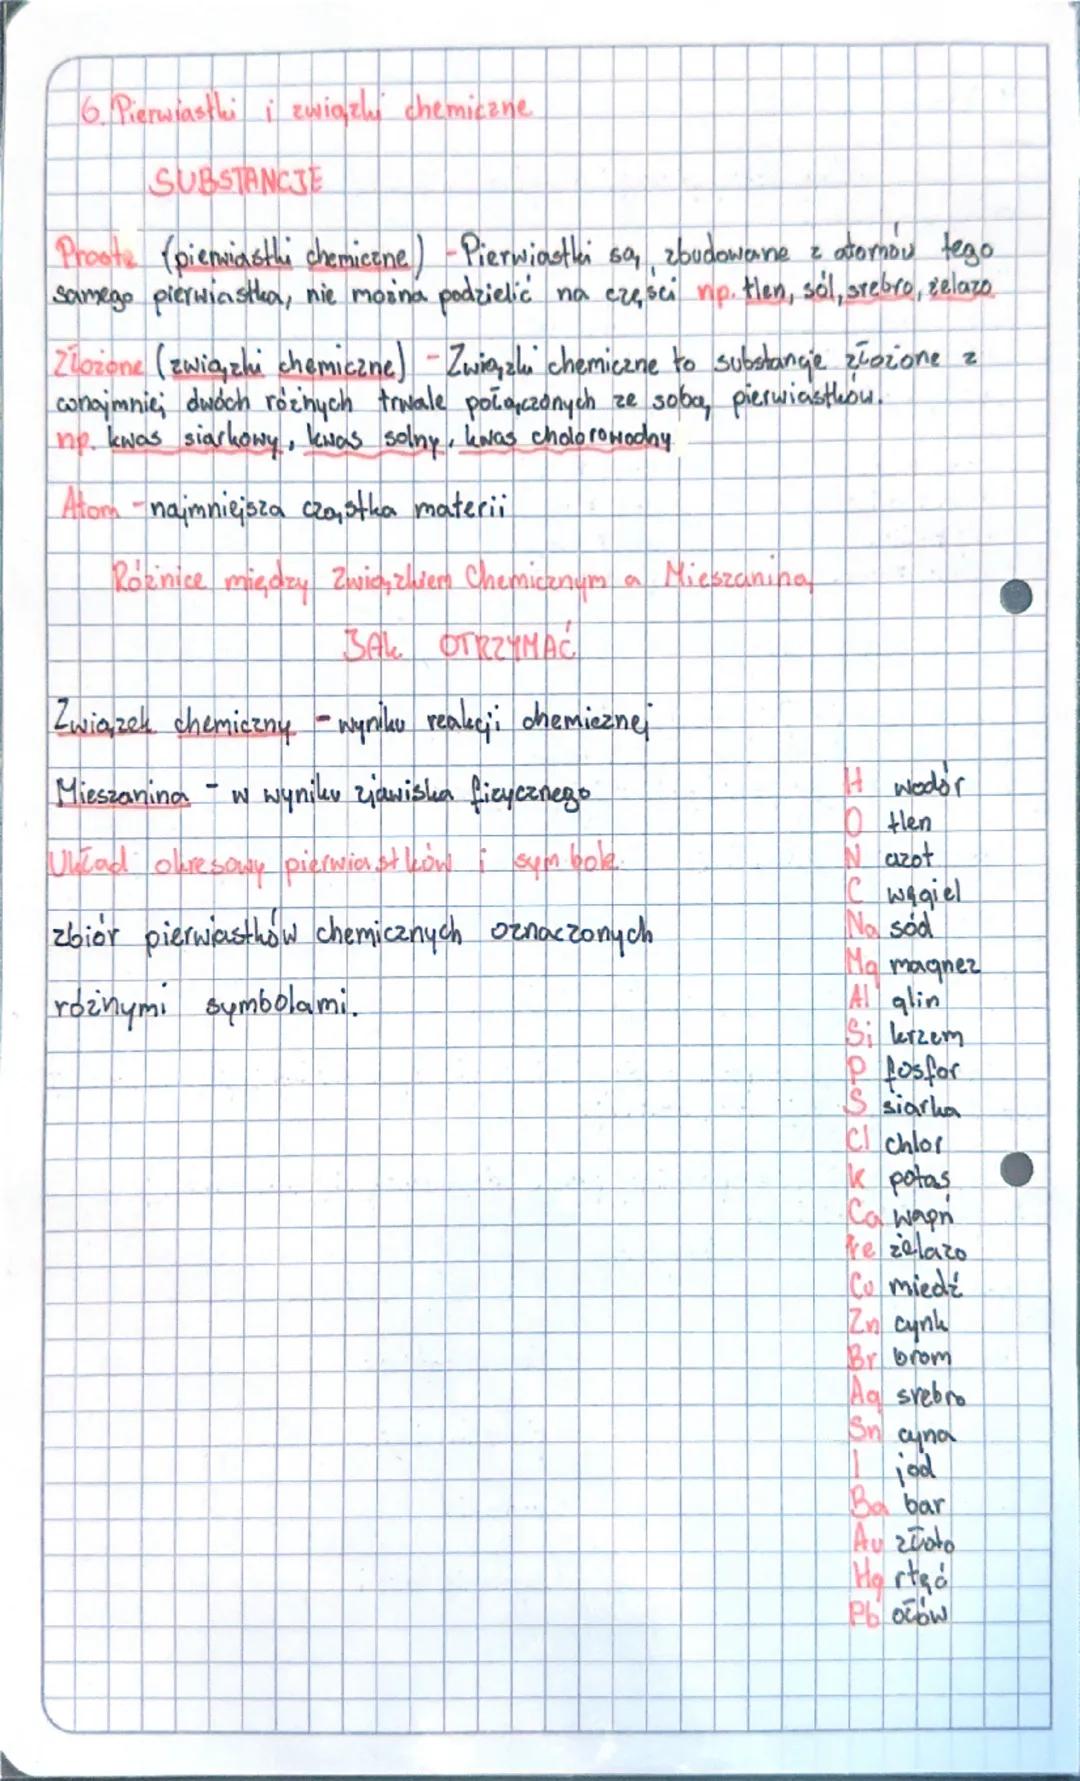 6. Pierwiastki i związki chemiczne
SUBSTANCJE
Proste (pierwiastki chemiczne) - Pierwiastki są zbudowane z atomów tego
samego pierwiastka, nie można podzielić na części np. tlen, sól, srebro, żelazo
Złożone (związki chemiczne) - Związki chemiczne to substancje złożone z
conajmniej dwóch różnych trwale połączonych ze sobą pierwiastków.
np. kwas siarkowy, kwas solny, kwas cholorowodny
Atom - najmniejsza cząstka materii
Różnice między Związkiem Chemicznym a Mieszaniną
JAK OTRZYMAĆ
Związek chemiczny - wyniku reakcji chemicznej
Mieszanina - w wyniku zjawiska fizycznego
Układ okresowy pierwiastków i symbole
zbiór pierwiastków chemicznych oznaczonych
różnymi symbolami.
H wodór
O tlen
N azot
C węgiel
Na sód
Mg magnez
Al glin
Si krzem
P fosfor
S siarka
Cl chlor
K potas
Ca wapń
Fe żelazo
Cu miedź
Zn cynk
Br brom
Ag srebro
Sn cyna
I jod
Ba bar
Au złoto
Hg rtęć
Pb ołów